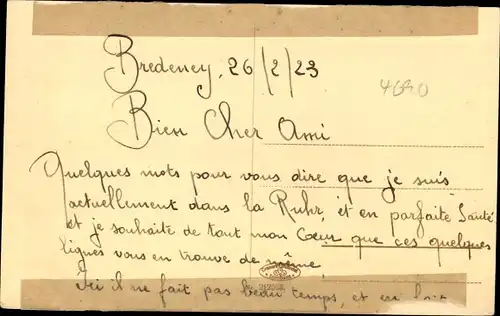 Bredeney, 26/2/23
Bien Cher Ami
Quelques mots pour vous dire que je suis
actuellement dans la Ruhr, et en parfaite Santé
et je souhaite de tout mon Cœur que ces quelques
lignes vous en trouve de même.
Ici il ne fait pas beau temps, et en